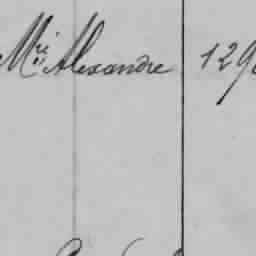 Mrie Alexandre 129